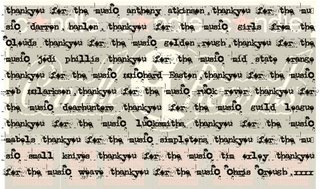 thankyou for the music anthony atkinson, thankyou for the mu
sic darren, hanlon, thankyou for the music girls from the
clouds thankyou for the music golden, rough, thankyou for the
music, jodi phillis thankyou for the music mid state orange
thankyou for the music richard easton, thankyou for the music
rob clarkson, thankyou for the music rock rover thankyou for
the music dearhunters thankyou for the music guild league
thankyou for the music lucksmiths, thankyou for the music
mabels thankyou for the music simpletons, thankyou for the mu
sic small knives thankyou for the music tim oxley thankyou
for the music weave thankyou for the music Chris Crouch, xxxx